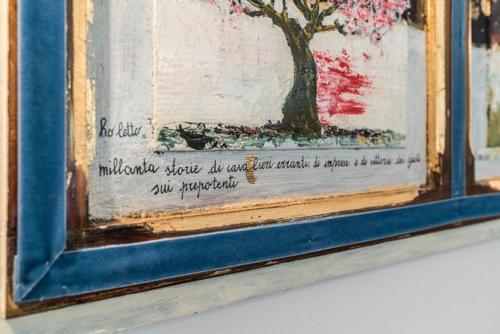 ho letto..
millanta storie di cavalieri erranti, di imprese e di vittorie dei giusti
sui prepotenti